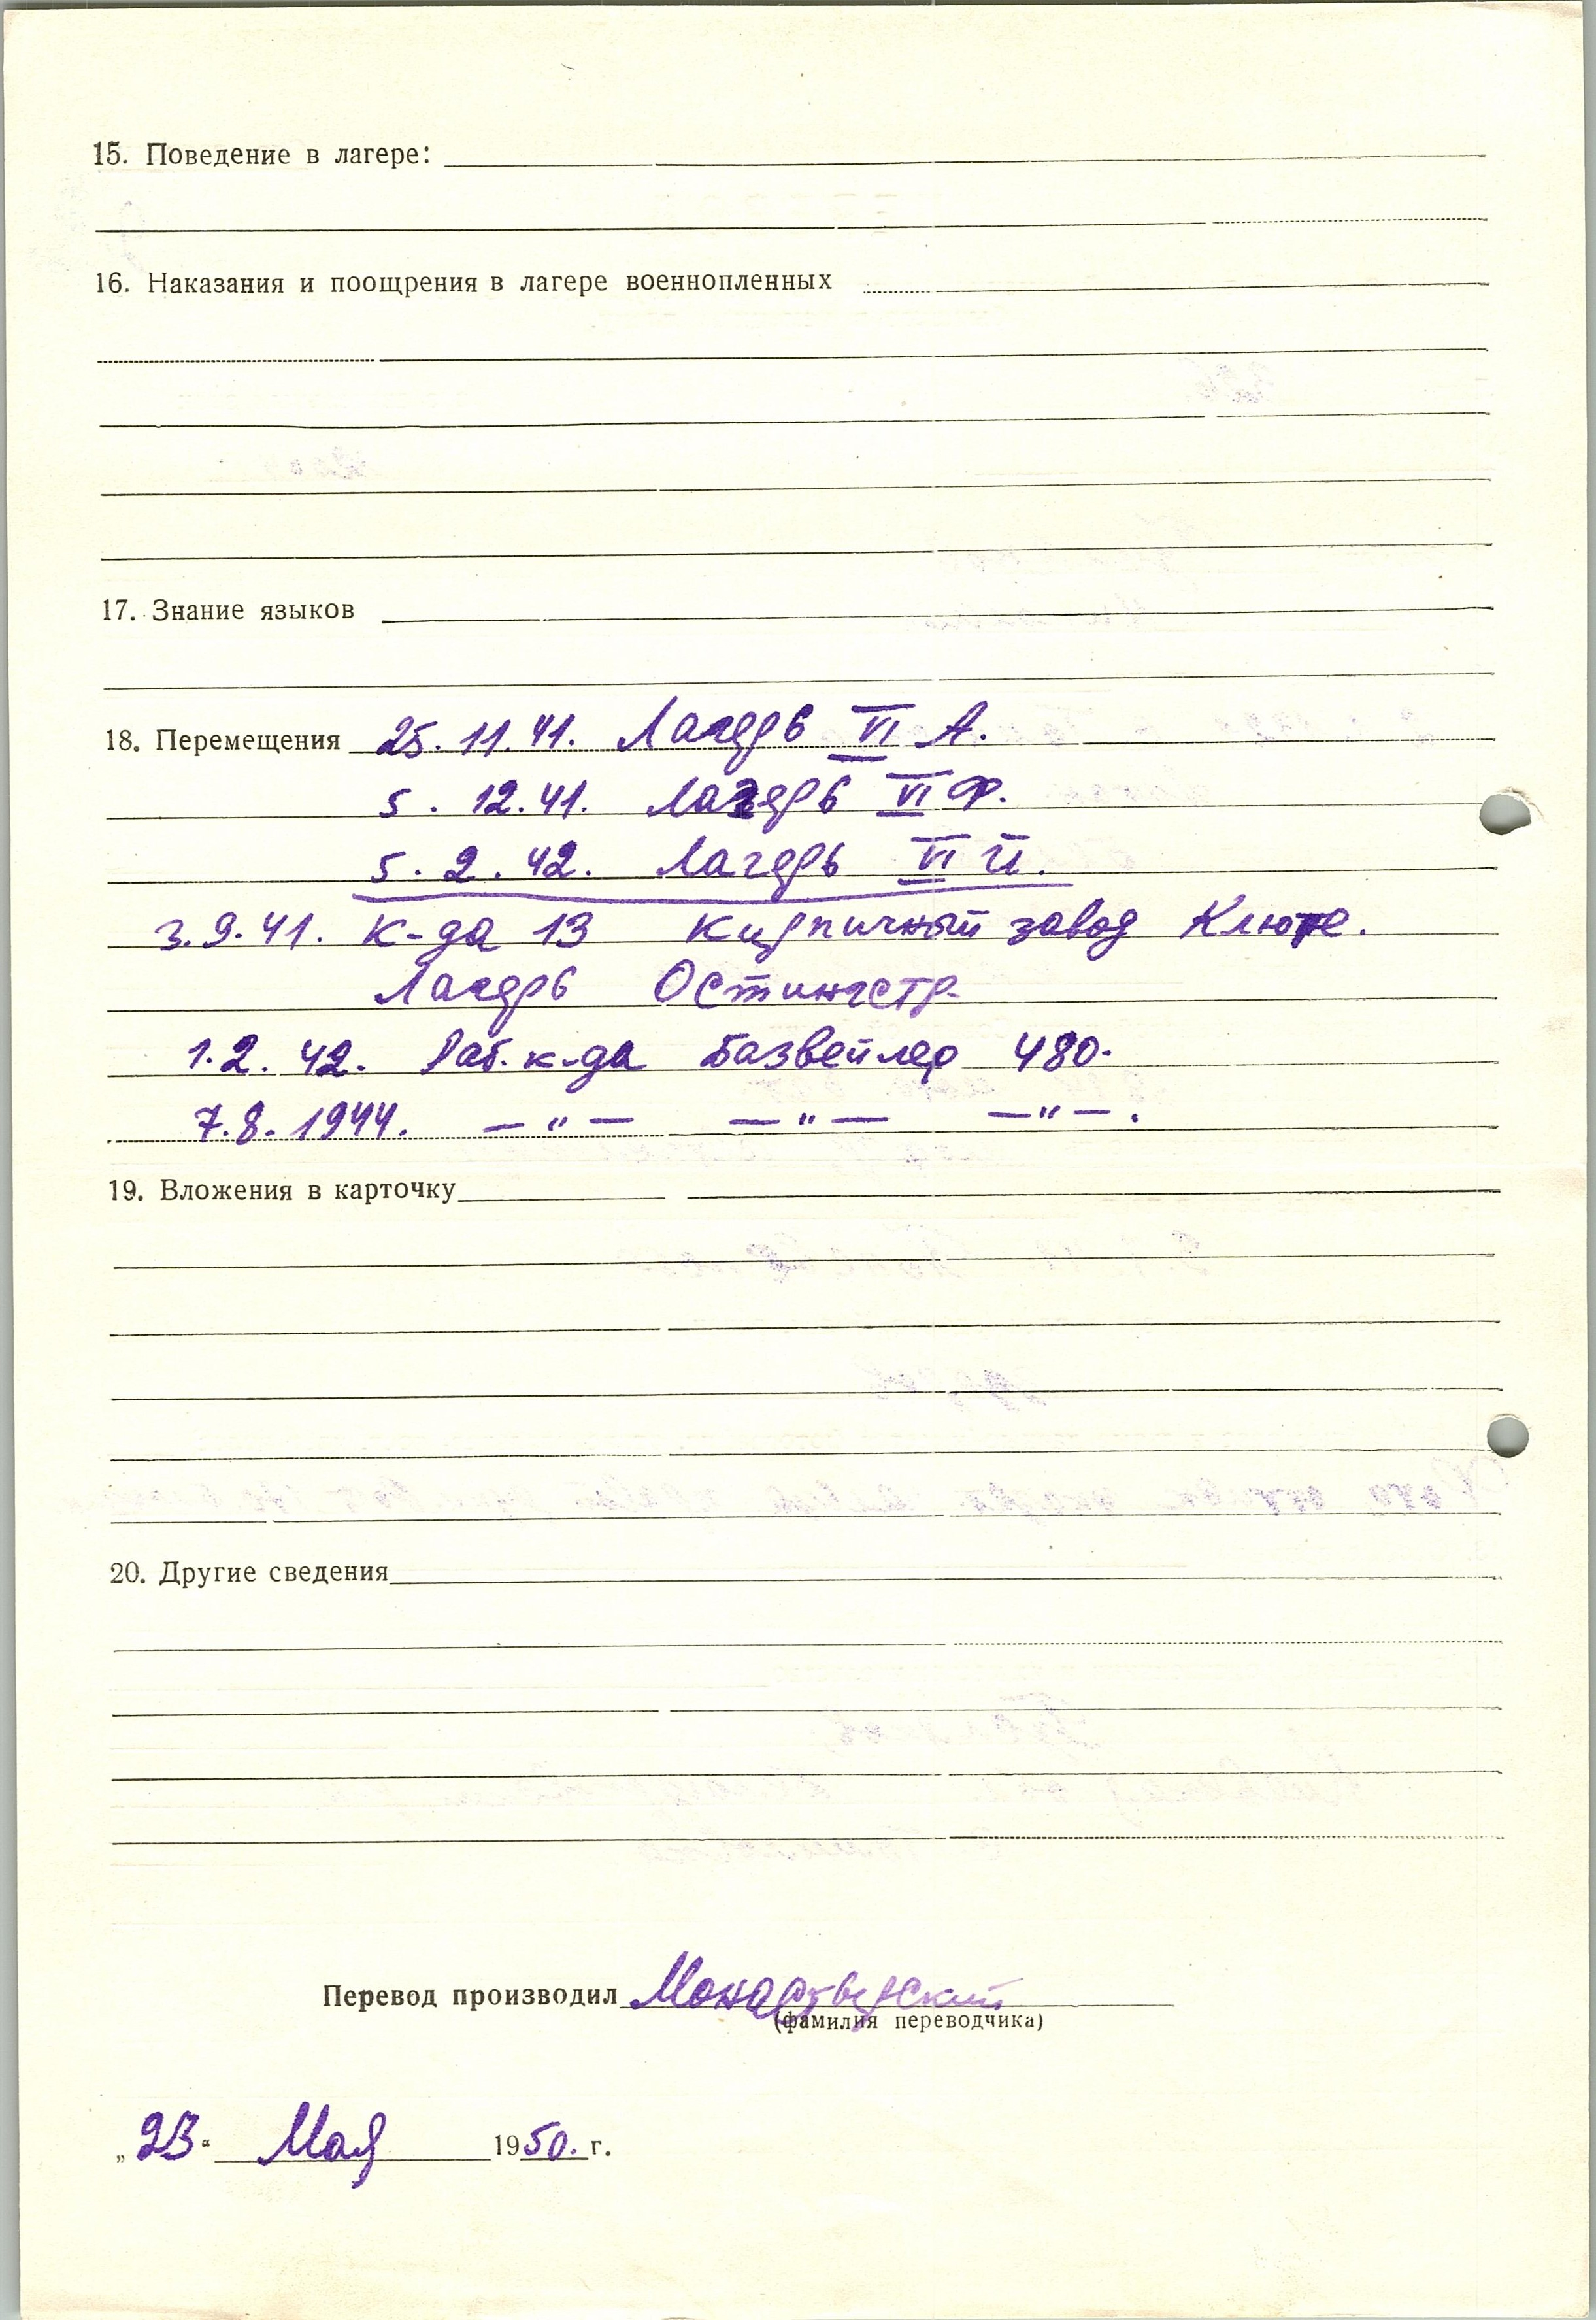 15. Поведение в лагере:
16. Наказания и поощрения в лагере военнопленных
17. Знание языков
18. Перемещения 25.11.41. Лагерь VI А.
5. 12.41. Лагерь VI Ф.
5. 2. 42. Лагерь VI Й.
3.9.41. к-да 13 Кирпичный завод Клюте.
Лагерь Остингстр.
1.2. 42. Раб. к-да Базвейлер 480.
7.8.1944. — " — — " — — " — .
19. Вложения в карточку
20. Другие сведения
Перевод производил Монастырский
(фамилия переводчика)
„23“ Мая 1950. г.